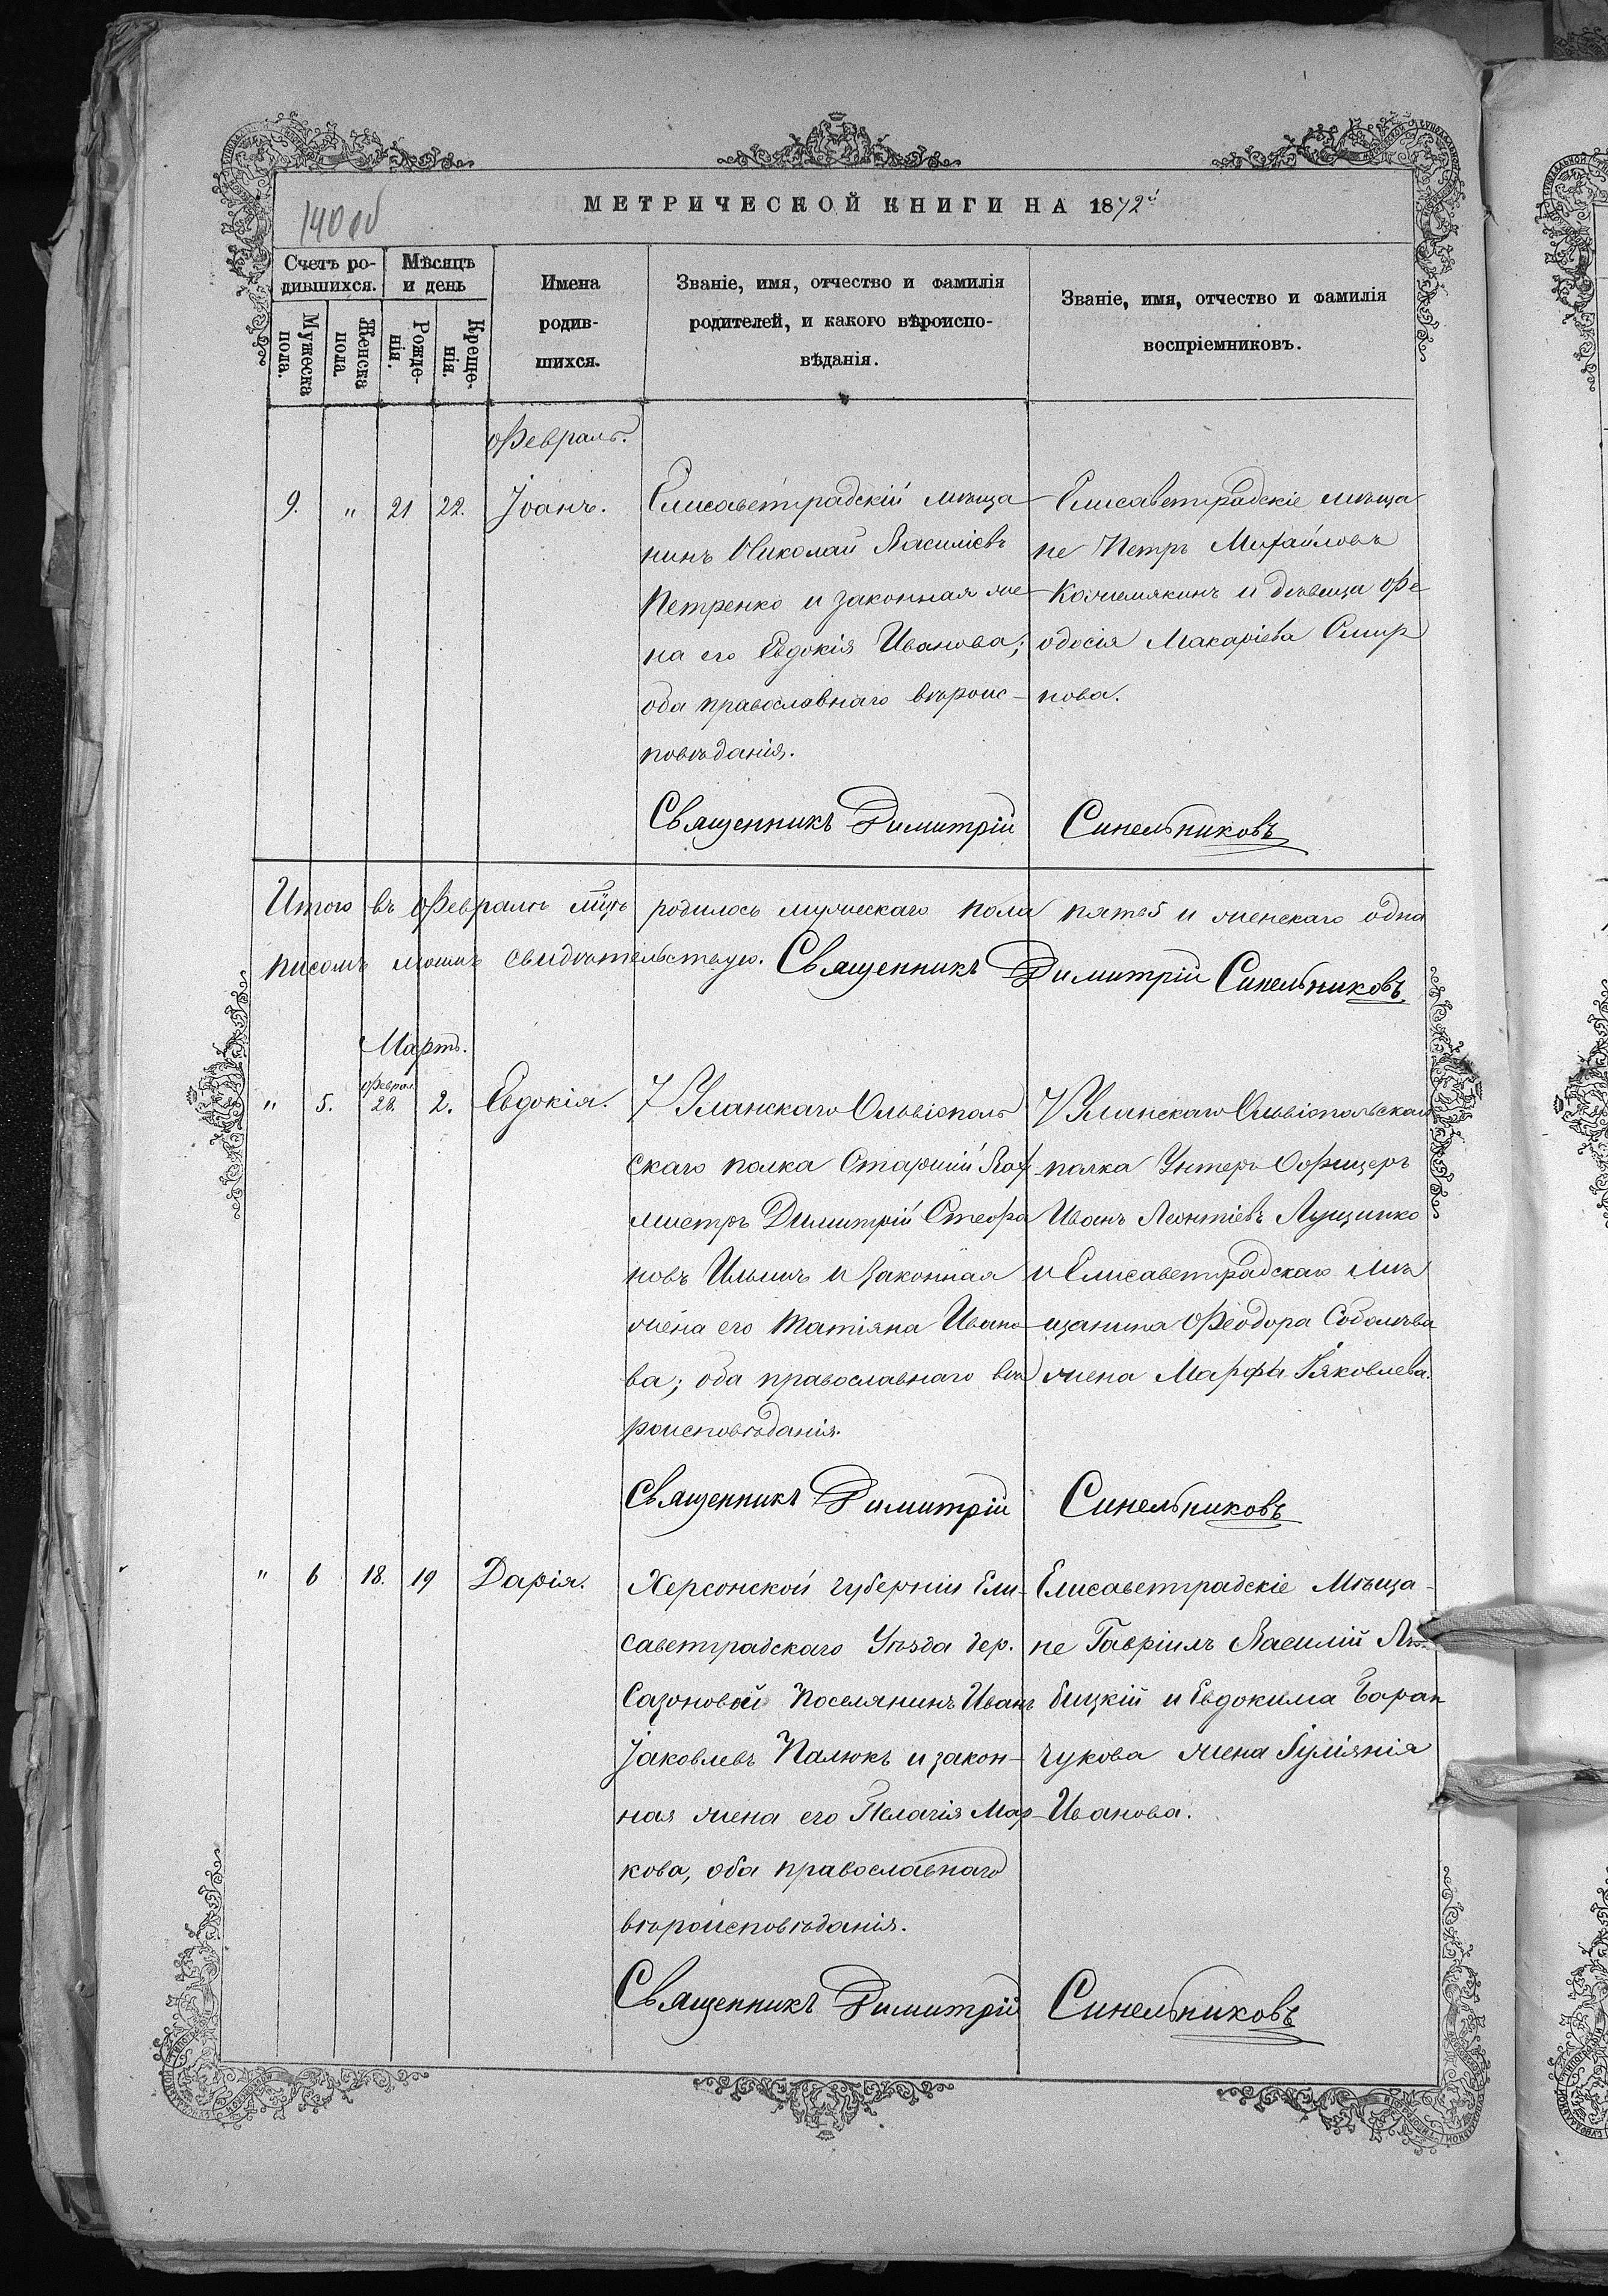 140 об
МЕТРИЧЕСКОЙ КНИГИ НА 1872
Счетъ ро-
дившихся.
Мѣсяцъ
и день
Мужеска
пола.
Женска
пола.
Рожде-
нія.
Креще-
нія.
Имена
родив-
шихся.
Званіе, имя, отчество и фамилія
родителей, и какого вѣроиспо-
вѣданія.
Званіе, имя, отчество и фамилія
воспріемниковъ.
Февраль.
9. " 21 22. Іоанъ.
Елисаветградскій мѣща
нинъ Николай Василіевъ
Петренко и законная же
на его Евдокія Иванова;
оба православнаго вѣроис-
повѣданія.
Елисаветградскіе мѣща
не Петръ Михайловъ
Кожемякинъ и дѣвица Ѳе
одосія Макаріева Смир
нова.
Священникъ Димитрій Синельниковъ
Итого въ Февралѣ мцѣ родилось мужескаго пола пять и женскаго одна
писомъ моимъ свидѣтельствую. Священникъ Димитрій Синельниковъ
Мартъ.
" 5. Феврал. 28. 2. Евдокія.
7 Уланскаго Ольвіополь
скаго полка Старшій Вах
мистръ Димитрій Стефа
новъ Ильинъ и законная
жена его Татіяна Ивано
ва; оба православнаго вѣ
роисповѣданія.
7 Уланскаго Ольвіопольскаго
полка Унтеръ-Офицеръ
Иванъ Леонтіевъ Лущинко
и Елисаветградскаго мѣ
щанина Ѳеодора Соболева
жена Марфа Іяковлева.
Священникъ Димитрій Синельниковъ
" 6 18. 19 Дарія.
Херсонской губерніи Ели-
саветградскаго Уѣзда дер.
Сазоновой Поселянинъ Иванъ
Іаковлевъ Палюкъ и закон-
ная жена его Пелагія Мар-
кова, оба православнаго
вѣроисповѣданія.
Елисаветградскіе Мѣща-
не Гавріилъ Василій
бицкій и Евдокима Баран
чукова жена Іуліянія
Иванова.
Священникъ Димитрій Синельниковъ